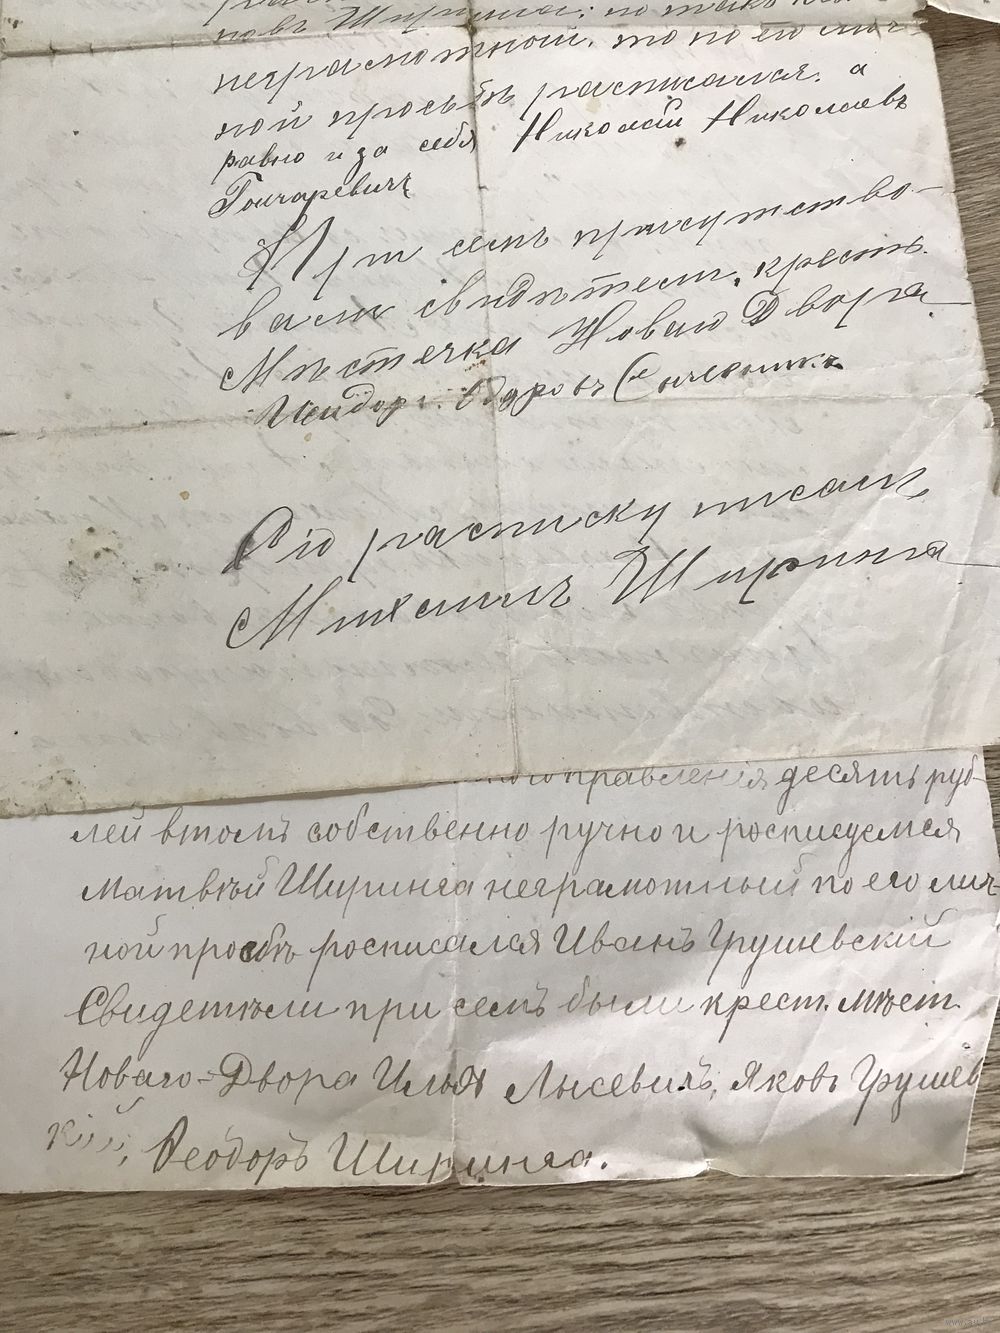 новъ Ширинга; но такъ какъ
неграмотный, то по его лич-
ной просьбѣ расписался, а
равно и за себя Николай Николаевъ
Гончаревичъ
При семъ присутство-
вали свидѣтели, крестъ.
Мѣстечка Новаго Двора
Исидоръ
Сію расписку писалъ
Михаилъ Ширинга
правленія десять руб-
лей втомъ собственно ручно и росписуемся
Матвѣй Ширинга неграмотный по его лич-
ной просбѣ росписался Иванъ Грушевский
Свидетѣли при семъ были крест. мѣст.
Новаго-Двора Илья Лысевичъ, Яковъ Грушев
кий, Ѳеодоръ Ширинга.